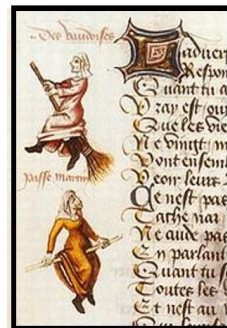 Des vaudoises
passe martin
L adver
Respon
Quant tu a
Vray est qu
Que les vie
Ne vingt n
Vont ensem
Veoir leurs
Ce nest pas
Cathe par
Ne aude pas
En parlant
Quant tu s
Toutes les
Et nest au